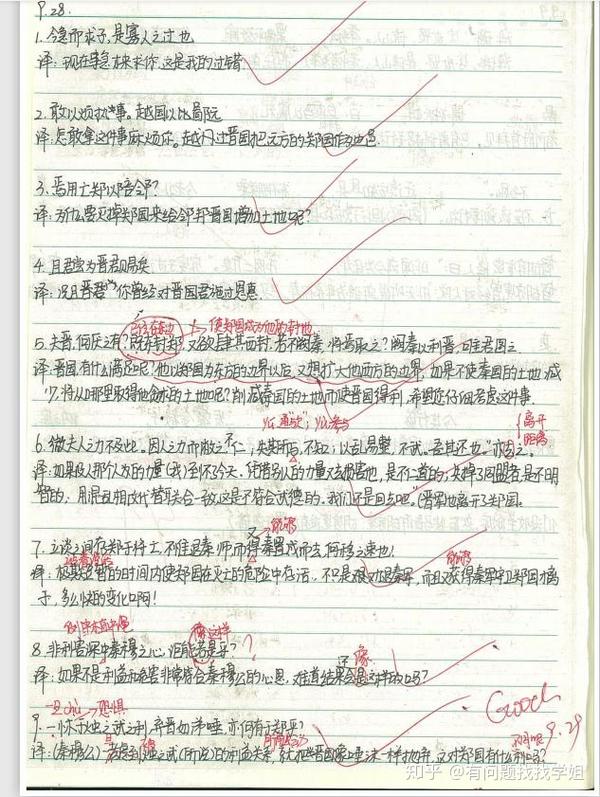 9.28.
1.今急而求子,是寡人之过也
译:现在危急才来求你,这是我的过错
2.敢以烦执事。越国以鄙远
译:怎敢拿这件事麻烦你。越过晋国把远方的郑国作为边邑
3.焉用亡郑以陪邻?
译:为什么要灭掉郑国来给邻邦晋国增加土地呢?
4.且君尝为晋君赐矣
译:况且 你曾经对晋国君施过恩惠.
已 东边 → 使郑国成为他的封地
5.夫晋,何厌之有?既东封郑,又欲肆其西封,若不阙秦,将焉取之?阙秦以利晋,唯君图之.
译:晋国有什么满足呢?他以郑国为东方的边界以后,又想扩大他西方的边界,如果不使秦国的土地减
少,将从哪里取得他贪求的土地呢?削减秦国的土地而使晋国得利,希望您仔细考虑这件事.
离开
距离
6.微夫人之力不及此。因人之力而敝之,不仁;失其所与,不知;以乱易整,不武。吾其还也。"亦去之。
译:如果没那个人的力量(我)到不了今天,凭借别人的力量又去损害他,是不仁道的;失掉了同盟者是不明
智的,用混乱相攻代替联合一致,这是不符合武德的。我们还是回去吧。"(晋军)也离开了郑国。
能够
7.立谈之间存郑于将亡,不惟退秦师,而又得秦置戍而去,何移之速也!
能够
译:极其短暂的时间内使郑国在灭亡的危险中存活,不只是 退秦军,而且又获得秦军 郑国才离
去,多么快的变化啊!
像这样
8.非利害深中秦穆之心,讵能若是乎?
还 像
译:如果不是利益和危害非常符合秦穆公的心思,难道结果会是这样的吗?
一旦 chù→恐惧
Good
9.29
9.一怵于烛之武之利,弃晋如涕唾,亦何有于郑乎?
译:(秦穆公)一 烛之武(所说)的利益关系,就把晋国像唾沫一样抛弃,又对郑国有什么利呢?
知乎 @有问题找找学姐